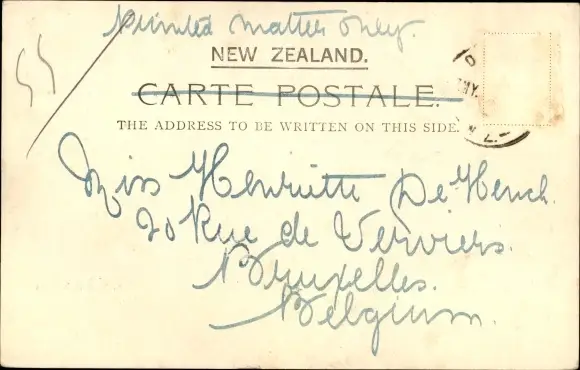 Printed matter only.
NEW ZEALAND.
CARTE POSTALE.
THE ADDRESS TO BE WRITTEN ON THIS SIDE.
Miss Henriette De Hench.
20 Rue de Verviers.
Bruxelles.
Belgium.